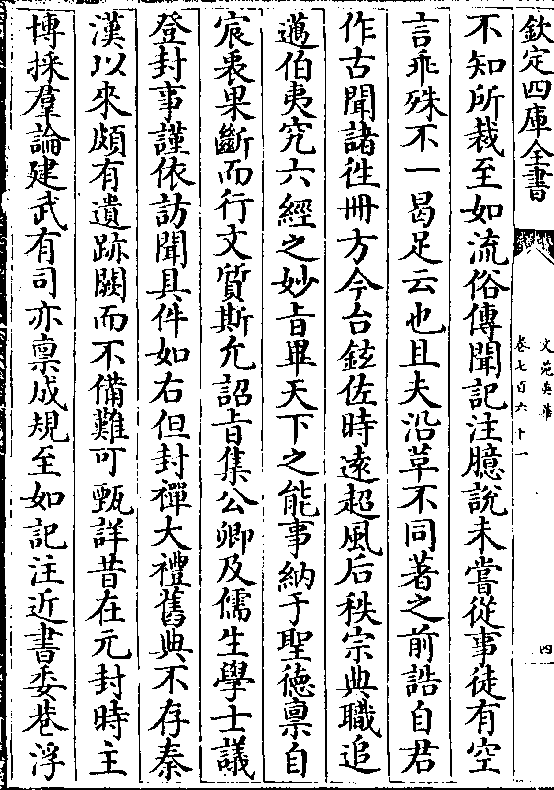 欽定四庫全書
文苑英華
卷七百六十一
四
不知所裁至如流俗傳聞記注臆說未嘗從事徒有空
言乖殊不一曷足云也且夫沿草不同著之前誥自君
作古聞諸徃冊方今台鉉佐時逺超風后秩宗典職追
邁伯夷究六經之妙㫖畢天下之能事納于聖徳禀自
宸衷果斷而行文質斯允詔㫖集公卿及儒生學士議
登封事謹依訪聞具件如右但封禪大禮舊典不存秦
漢以來頗有遺跡闕而不備難可甄詳昔在元封時主
博採羣論建武有司亦禀成規至如記注近書委巷浮